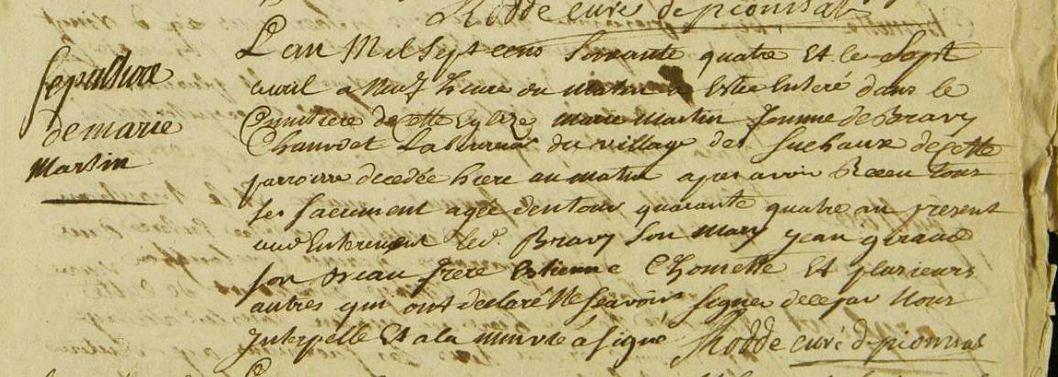 Rodde curé de pionsat
sepulture
de marie
Martin
L'an Mil Sept cens soixante quatre Et le Sept
avril a Neuf heure du matin a Estée Enteré dans le
Cimitiere de Cette Eglize marie martin femme de Bravy
Chauvet Laboureur du village des Suchaux de Cette
parroisse decedée hiere au matin apres avoir Receu tous
ses sacrement agée denton quarante quatre an present
aud Enterement led. Bravy son mary jean giraud
son beau frere Estienne Chomette Et plusieurs
autres qui ont declaré Ne scavoir signer de ce par Nous
Interpelle Et a la minute a signé Rodde curé de pionsat